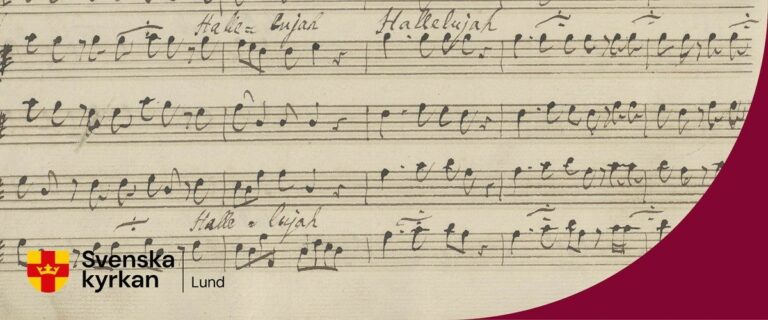 Halle= lujah Hallelujah
Halle = lujah
Svenska
kyrkan Lund